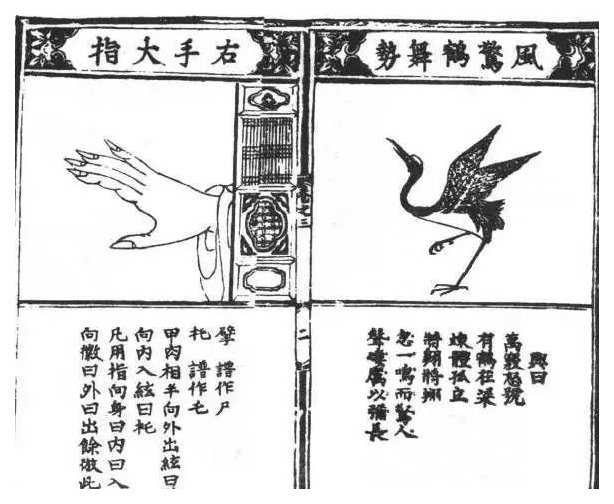 風驚鶴舞勢
興曰
萬竅怒號
有鶴在梁
竦體孤立
將翺將翔
忽一鳴而驚人
聲悽厲以彌長
二
右手大指
擘 譜作尸
托 譜作乇
甲肉相半向外出絃曰
向內入絃曰托
凡用指向身曰內曰入
向徽曰外曰出餘倣此